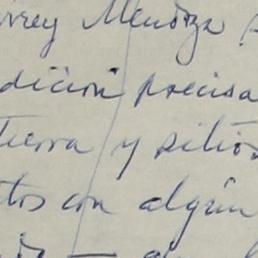 irrey Mendoza
dición precisa
tierra y sitios
tos con algún